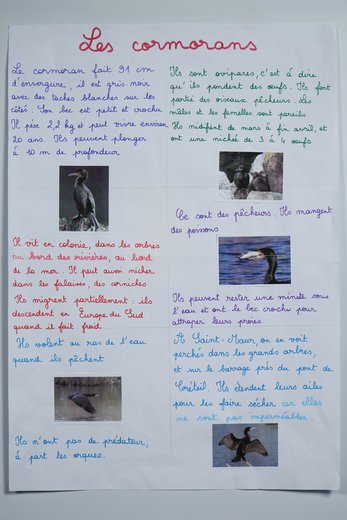 Les cormorans
Le cormoran fait 91 cm
d'envergure, il est gris noir
avec des taches blanches sur les
côtés. Son bec est petit et crochu
Il pèse 2,2 kg et peut vivre environ
20 ans. Ils peuvent plonger
à 10 m de profondeur
Il vit en colonie, dans les arbres
au bord des rivières, au bord
de la mer. Il peut aussi nicher
dans les falaises, des corniches
Ils migrent partiellement : ils
descendent en Europe du Sud
quand il fait froid
Ils volent au ras de l'eau
quand ils pêchent
Ils n'ont pas de prédateur,
à part les orques.
Ils sont ovipares, c'est à dire
qu'ils pondent des œufs. Ils font
partie des oiseaux pêcheurs. Les
mâles et les femelles sont pareils
Ils nidifient de mars à fin avril, et
ont une nichée de 3 à 4 œufs
Ce sont des pêcheurs. Ils mangent
des poissons
Ils peuvent rester une minute sous
l'eau et ont le bec crochu pour
attraper leurs proies
A Saint-Maur, on en voit
perchés dans les grands arbres,
et sur le barrage près du pont de
Créteil. Ils étendent leurs ailes
pour les faire sécher car elles
ne sont pas imperméables.